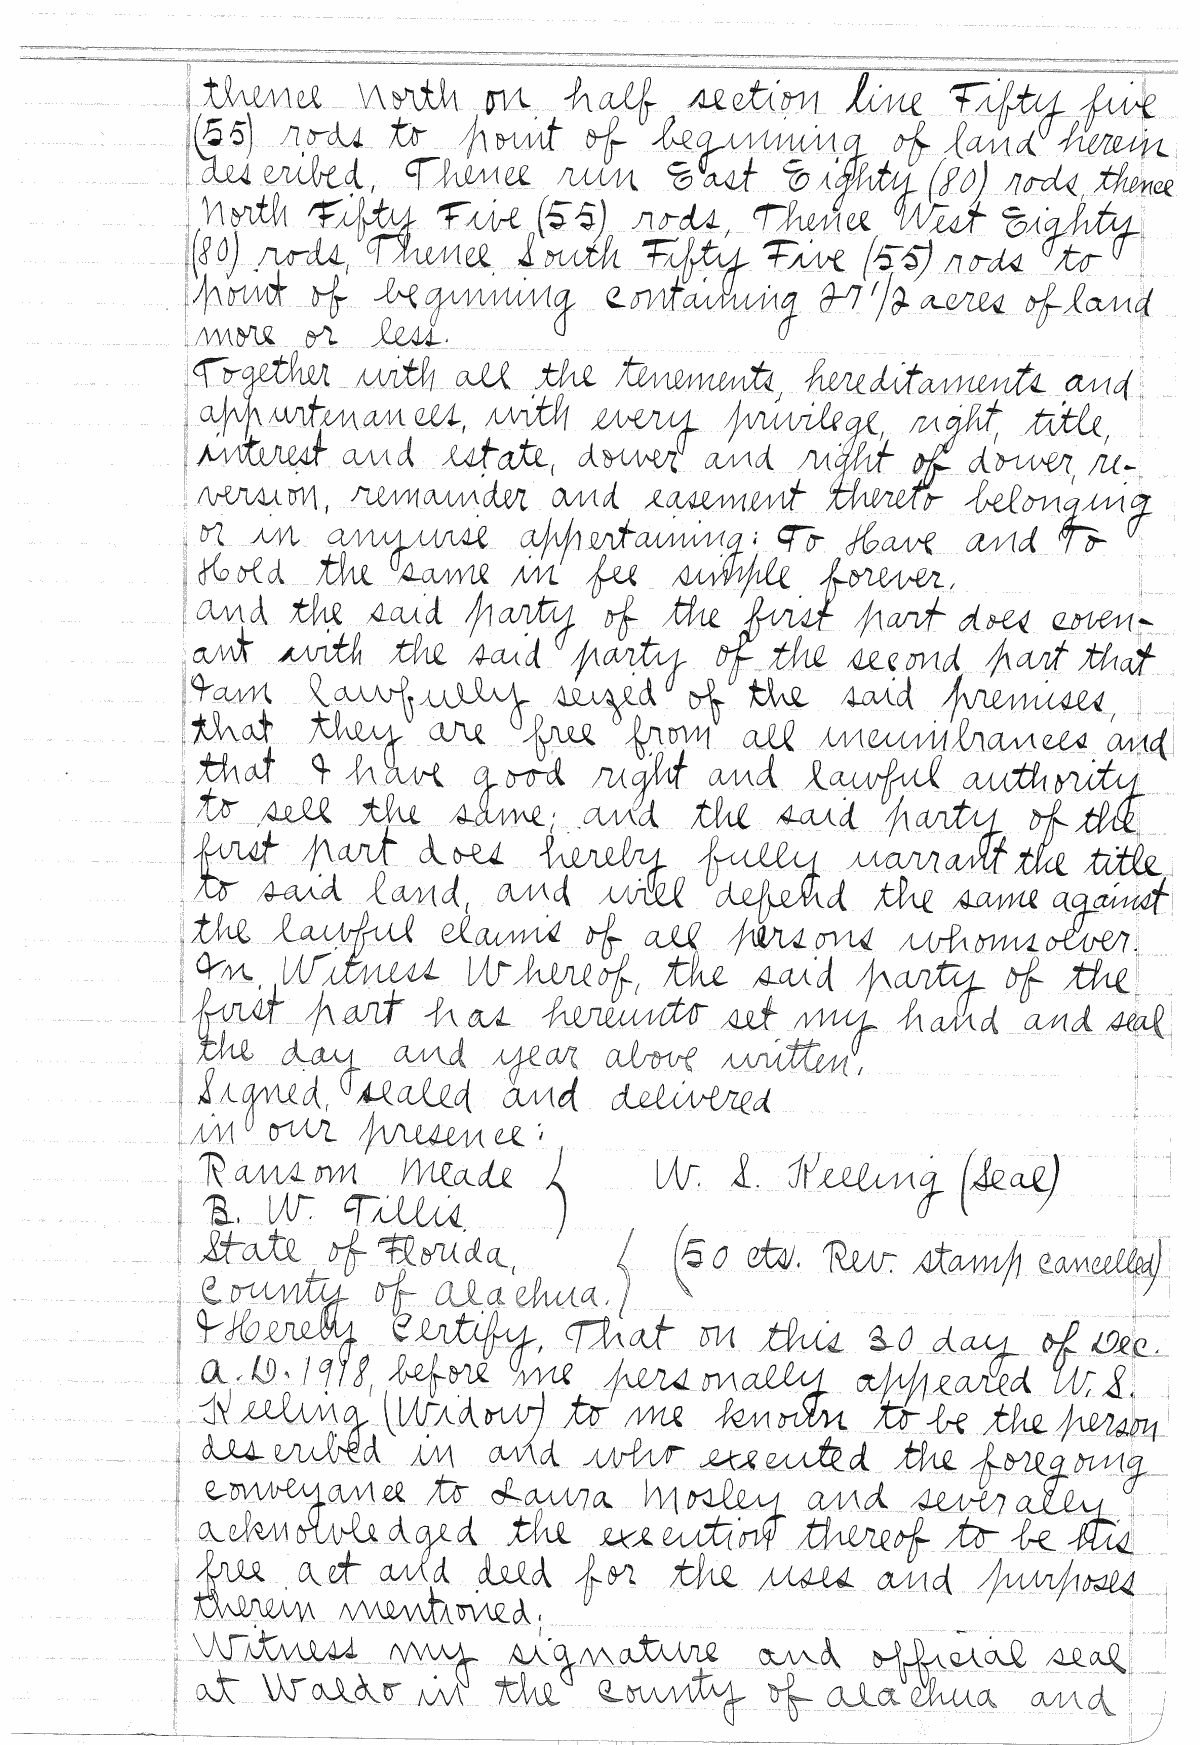 thence North on half section line Fifty five
(55) rods to point of beginning of land herein
described, Thence run East Eighty (80) rods, thence
North Fifty Five (55) rods, Thence West Eighty
(80) rods, Thence South Fifty Five (55) rods to
point of beginning containing 27 1/2 acres of land
more or less.
Together with all the tenements, hereditaments and
appurtenances, with every privilege, right, title,
interest and estate, dower and right of dower, re-
version, remainder and easement thereto belonging
or in anywise appertaining: To Have and To
Hold the same in fee simple forever.
and the said party of the first part does coven-
ant with the said party of the second part that
I am lawfully seized of the said premises,
that they are free from all incumbrances and
that I have good right and lawful authority
to sell the same; and the said party of the
first part does hereby fully warrant the title
to said land, and will defend the same against
the lawful claims of all persons whomsoever.
In Witness Whereof, the said party of the
first part has hereunto set my hand and seal
the day and year above written.
Signed, sealed and delivered
in our presence:
Ransom Meade } W. S. Keeling (Seal)
B. W. Tillis
State of Florida, } (50 cts. Rev. stamp cancelled)
County of Alachua.
I Hereby Certify, That on this 30 day of Dec.
A.D. 1918, before me personally appeared W. S.
Keeling (Widow) to me known to be the person
described in and who executed the foregoing
conveyance to Laura Mosley and severally
acknowledged the execution thereof to be his
free act and deed for the uses and purposes
therein mentioned;
Witness my signature and official seal
at Waldo in the County of Alachua and